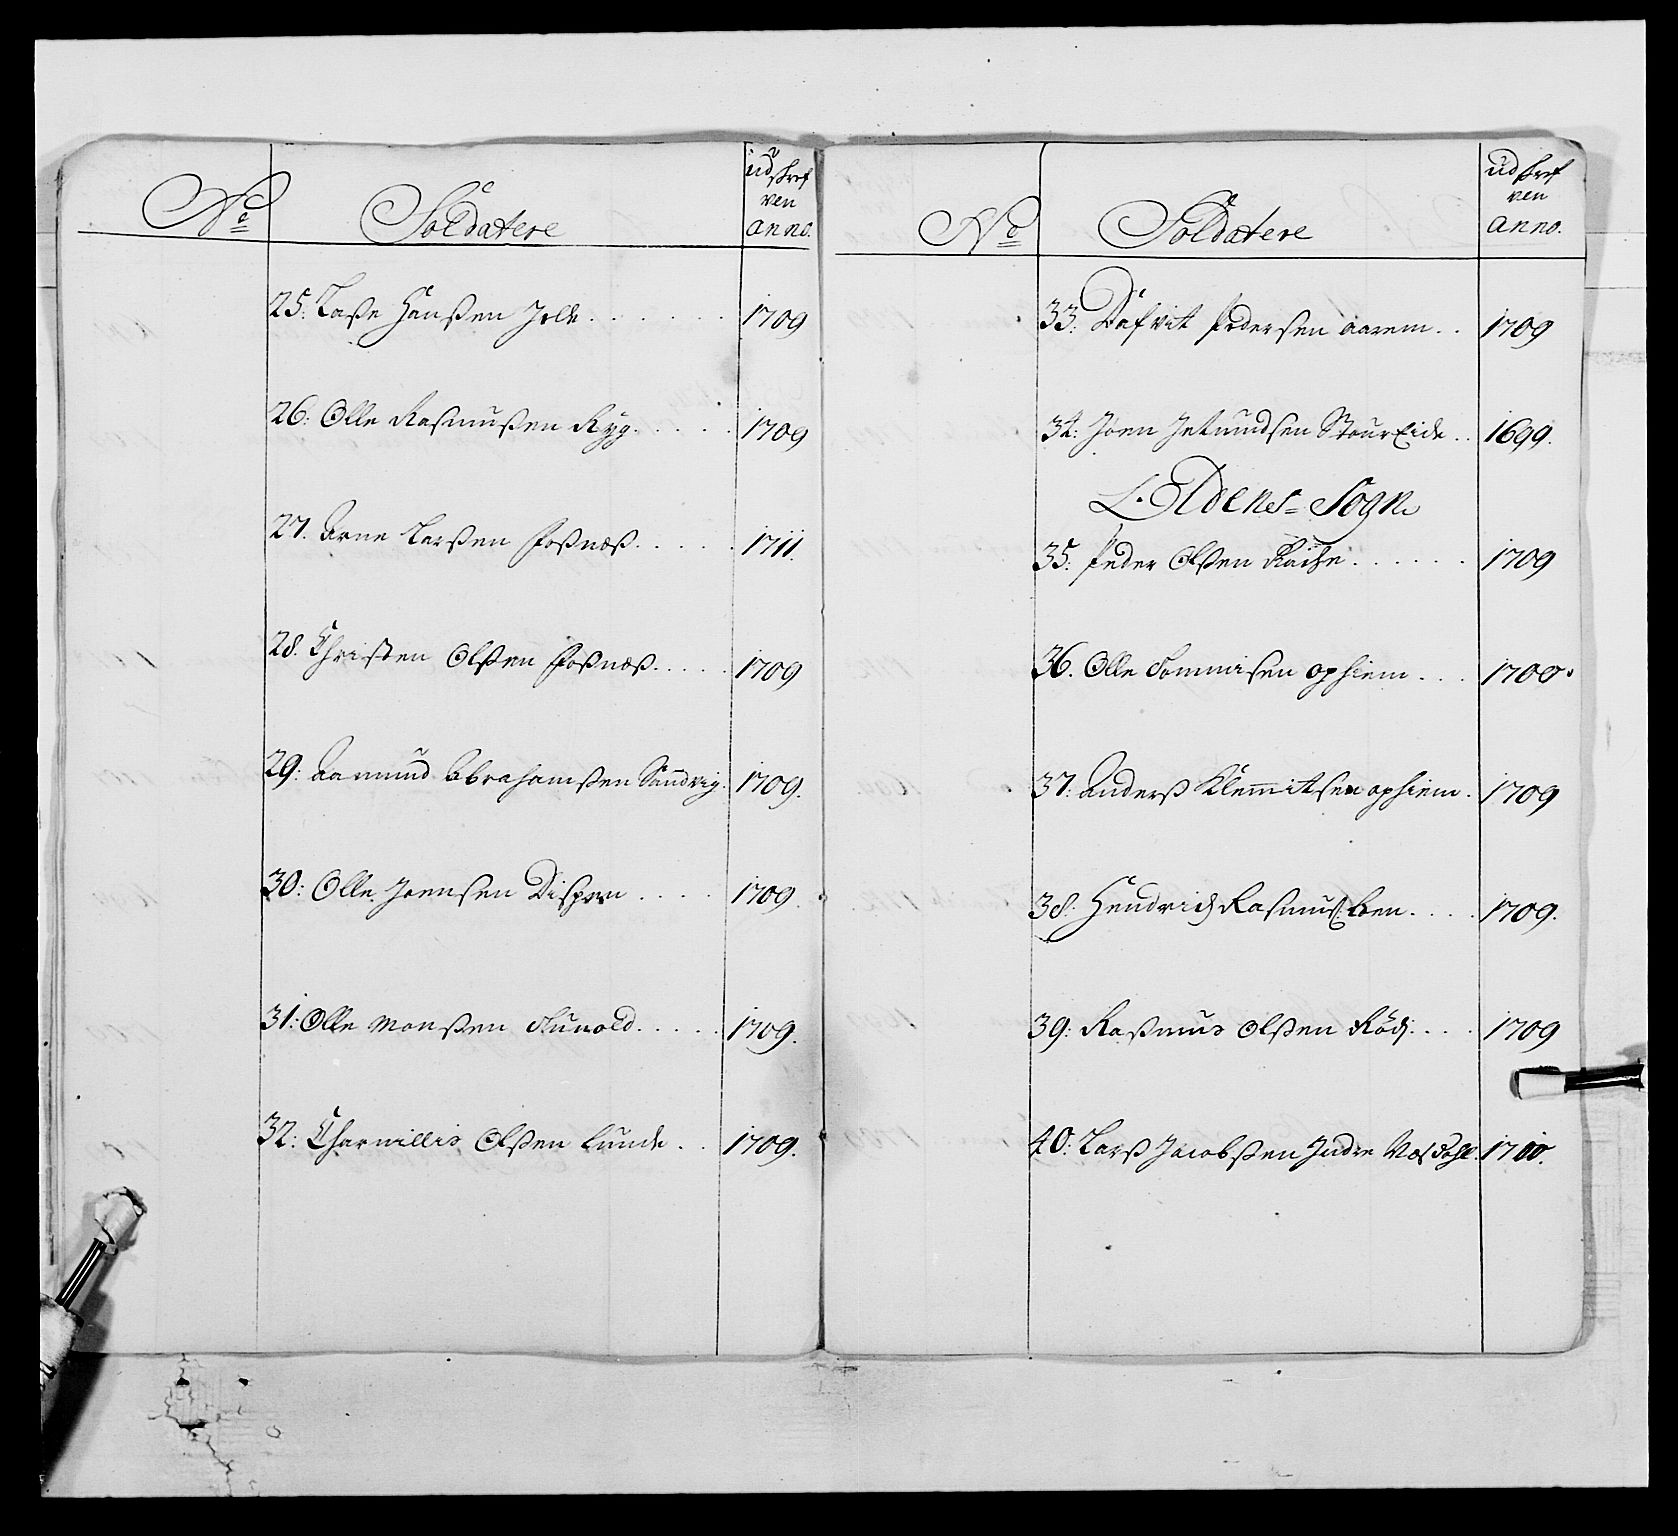 No
Soldatere
udskref
ven
anno.
25: Laße Hanßen Jelle 1709
26: Olle Rasmußen Ryg 1709
27. Arne Larßen Foßnæß 1711.
28. Christen Olßen Foßnæß 1709
29: Aamund Abrahamßen Sandvig. 1709.
30: Olle Joensen 1709.
31: Olle Monßen Fluvold 1709.
32: Olßen Lunde 1709.
No
Soldatere
udskref
ven
anno.
33: Dafvit Pedersen aarem 1709
34: Joen Jetmundsen StourEide 1699.
Eldens Sogn
35: Peder Olßen 1709
36. Olle Tommisen ophiem 1700.
37: Anderß Klemmitsen ophiem. 1709
38: Hendrich Rasmuß: Loen 1709.
39: Raßmus Olßen Röd 1709
40: Larß Jacobßen Indre 1710.